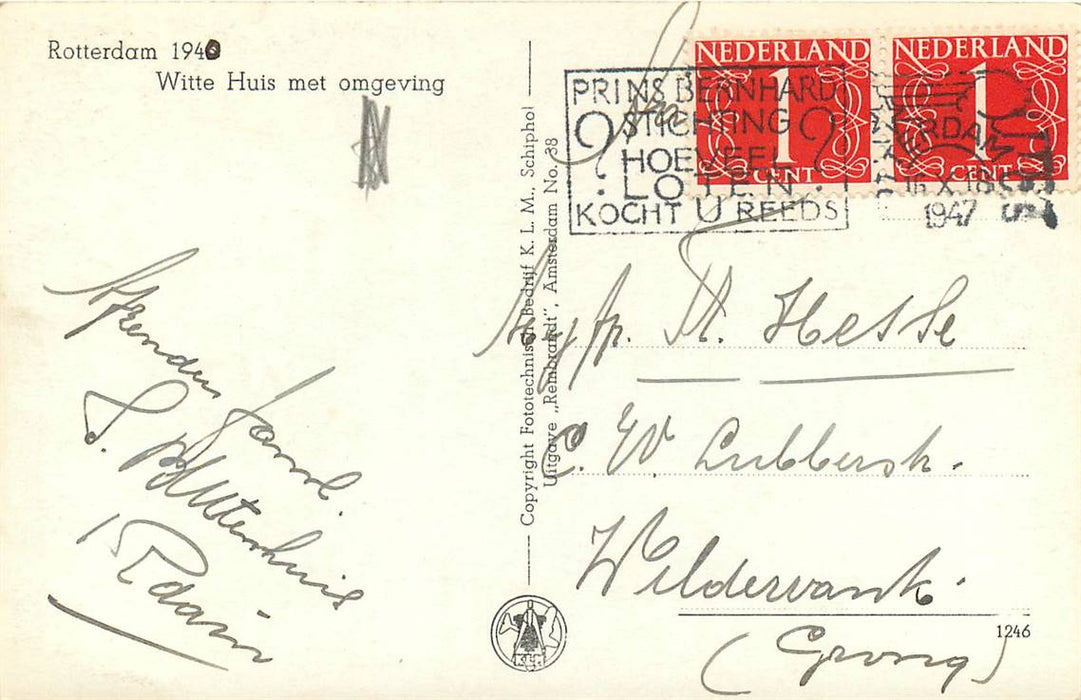 Rotterdam 1940
Witte Huis met omgeving
NEDERLAND
1
CENT
NEDERLAND
1
CENT
PRINS BERNHARD
STICHTING
? HOEVEEL ?
LOTEN
KOCHT U REEDS
16.X.18
1947
Copyright Fototechnisch Bedrijf K. L. M., Schiphol
Uitgave „Rembrandt", Amsterdam No. 38
Hesse
C. W. Lubbersk.
Wildervank.
(Grong)
R'dam
1246